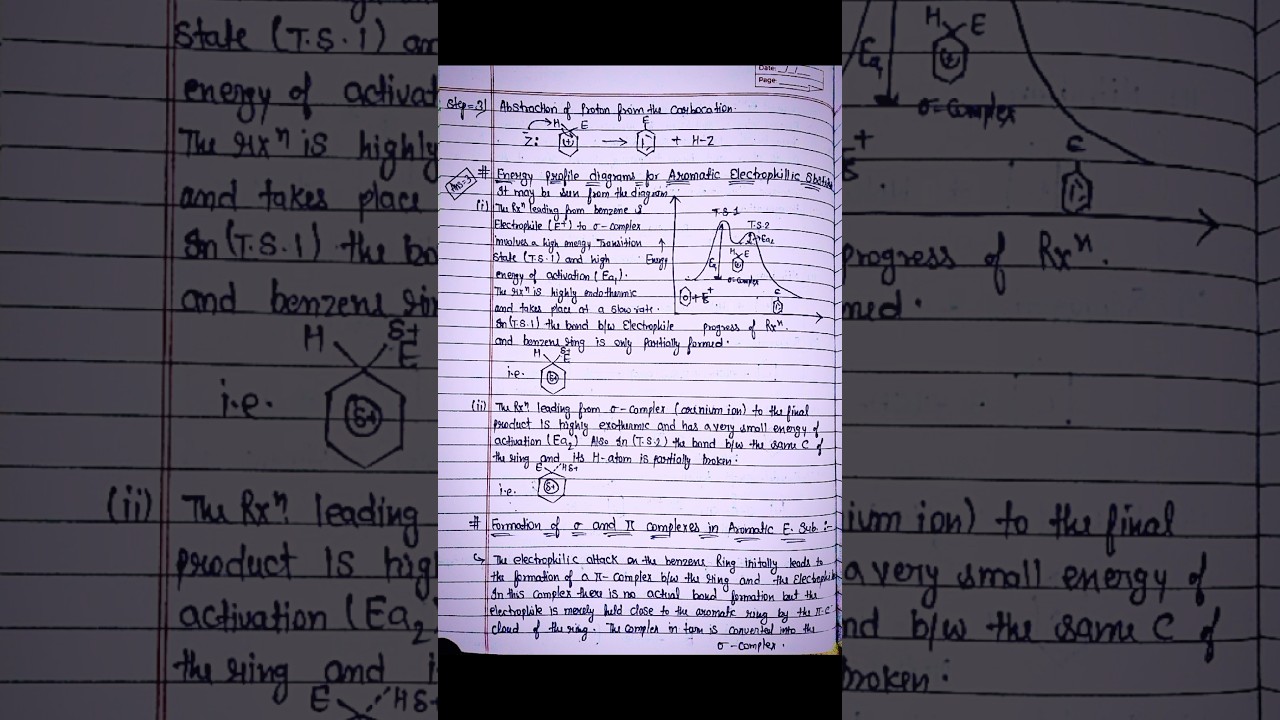 Date: __/__/__
Page
Step-3) Abstraction of Proton from the carbocation.
H E E
Z: + → + H-Z
# Energy profile diagrams for Aromatic Electrophillic Sbstitu
Ans-3
It may be seen from the diagram
(i) The Rxⁿ leading from benzene is
Electrophile (E⁺) to σ-complex
involves a high energy Transition
State (T.S.1) and high
energy of activation (Ea₁).
The rxⁿ is highly endothermic
and takes place at a slow rate.
In (T.S.1) the bond b/w Electrophile
and benzene ring is only partially formed.
T.S-1
T.S-2
Ea₂
Energy
Ea₁
H E
+
σ-complex
+ E⁺
E
progress of Rxⁿ.
H δ+ E
i.e. δ+
(ii) The Rxⁿ leading from σ-complex (arenium ion) to the final
product is highly exothermic and has a very small energy of
activation (Ea₂) Also In (T.S.2) the bond b/w the same C of
the ring and its H-atom is partially broken:
E Hδ+
i.e. δ+
# Formation of σ and π complexes in Aromatic E. Sub :-
↳ The electrophilic attack on the benzene Ring initally leads to
the formation of a π-complex b/w the ring and the Electrophile
In this complex there is no actual bond formation but the
electrophile is merely held close to the aromatic ring by the π-e⁻
cloud of the ring. The complex in tarn is converted into the
σ-complex.